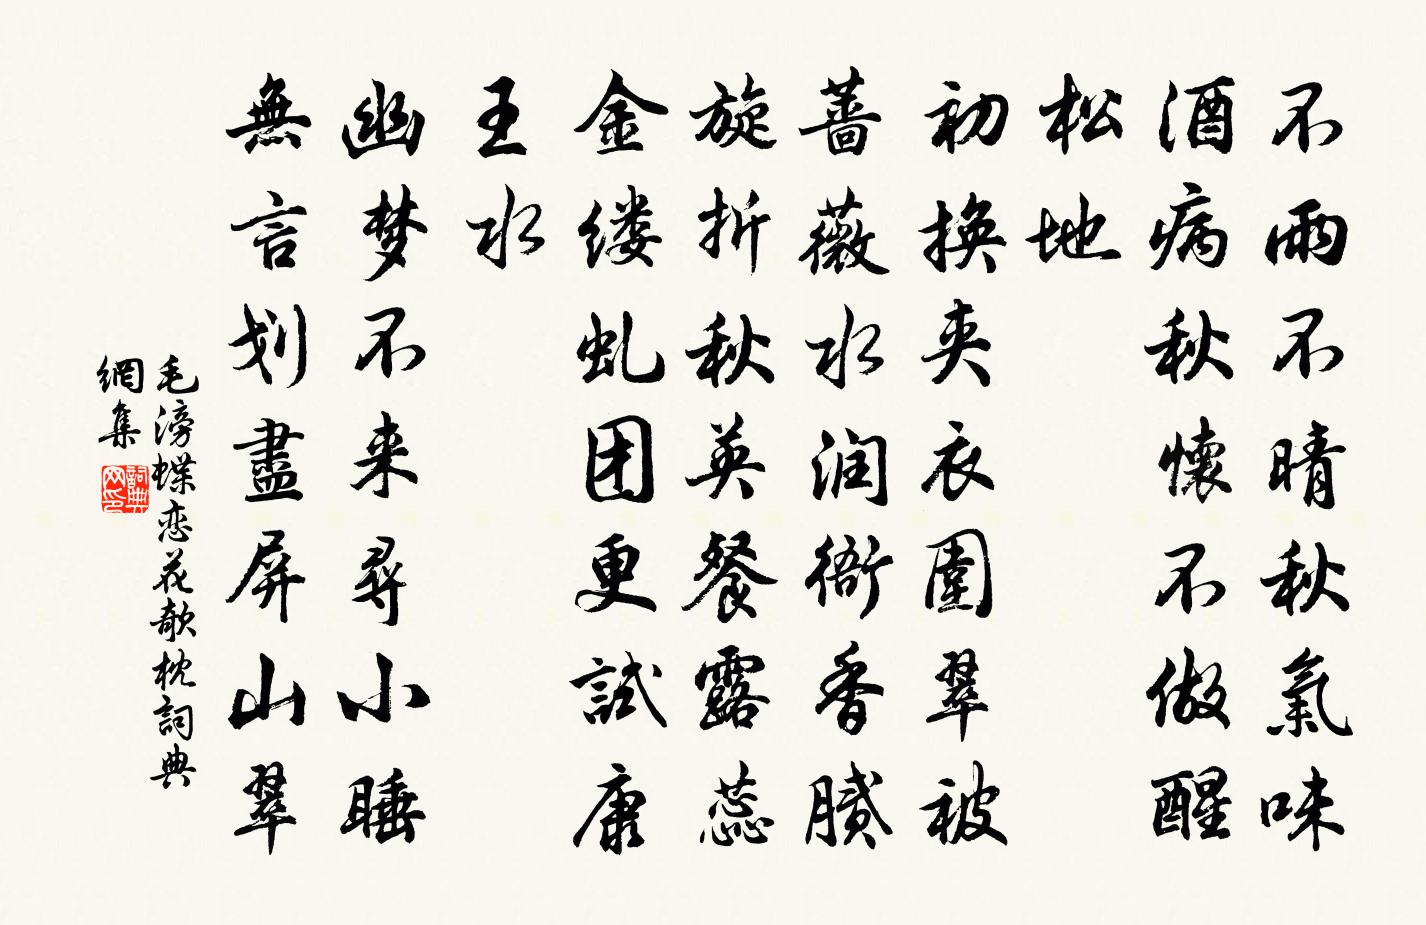 不雨不晴秋氣味
酒病秋懷不做醒
松地
初換夹衣圍翠被
蔷薇水润衙香膩
旋折秋英餐露蕊
金缕虬团更試康
王水
幽梦不来尋小睡
無言划盡屏山翠
毛滂蝶恋花欹枕詞典
網集
詞典网印